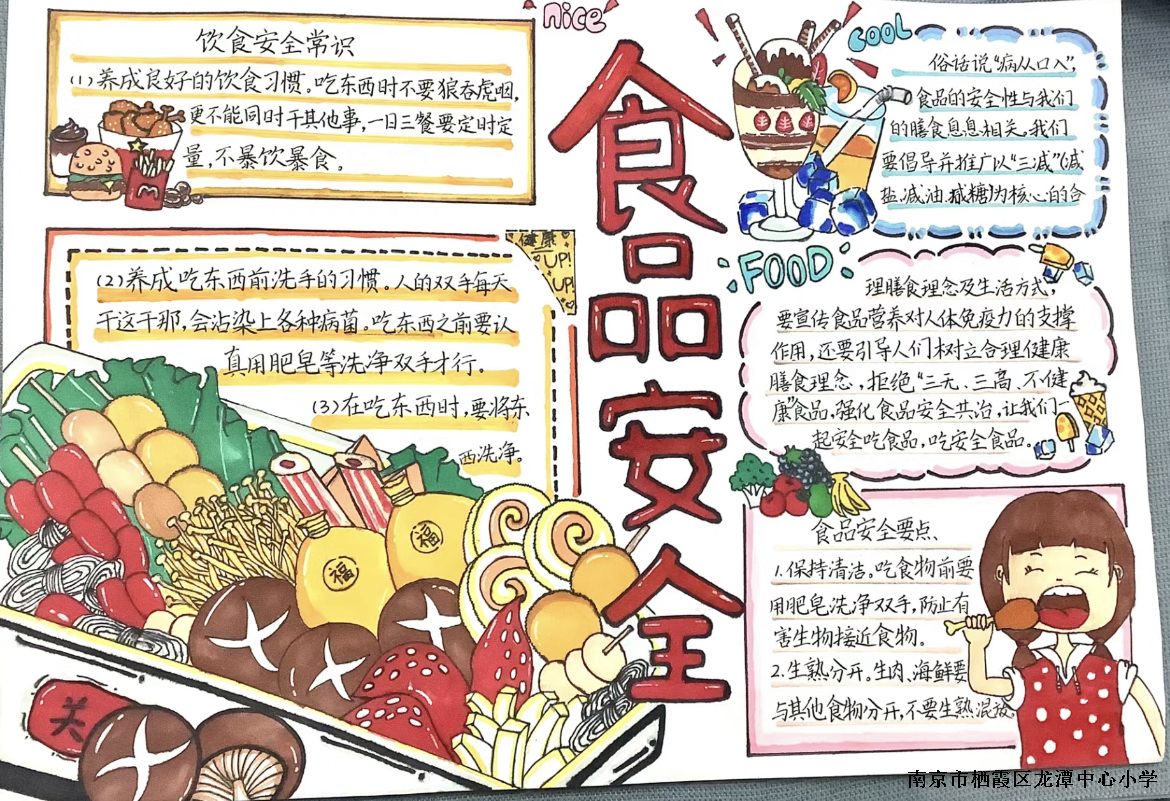 nice
COOL
食品安全
饮食安全常识
(1)养成良好的饮食习惯。吃东西时不要狼吞虎咽,
更不能同时干其他事,一日三餐要定时定
量,不暴饮暴食。
健康
UP!
UP!
(2)养成吃东西前洗手的习惯。人的双手每天
干这干那,会沾染上各种病菌。吃东西之前要认
真用肥皂等洗净双手才行。
(3)在吃东西时,要将东
西洗净。
福
福
关
俗话说“病从口入”,
食品的安全性与我们
的膳食息息相关。我们
要倡导并推广以“三减”(减
盐、减油、减糖)为核心的合
FOOD
理膳食理念及生活方式,
要宣传食品营养对人体免疫力的支撑
作用,还要引导人们树立合理健康
膳食理念,拒绝“三无、三高、不健
康”食品,强化食品安全共治,让我们一
起安全吃食品,吃安全食品。
食品安全要点、
1.保持清洁。吃食物前要
用肥皂洗净双手,防止有
害生物接近食物。
2.生熟分开。生肉、海鲜要
与其他食物分开,不要生熟混放
南京市栖霞区龙潭中心小学